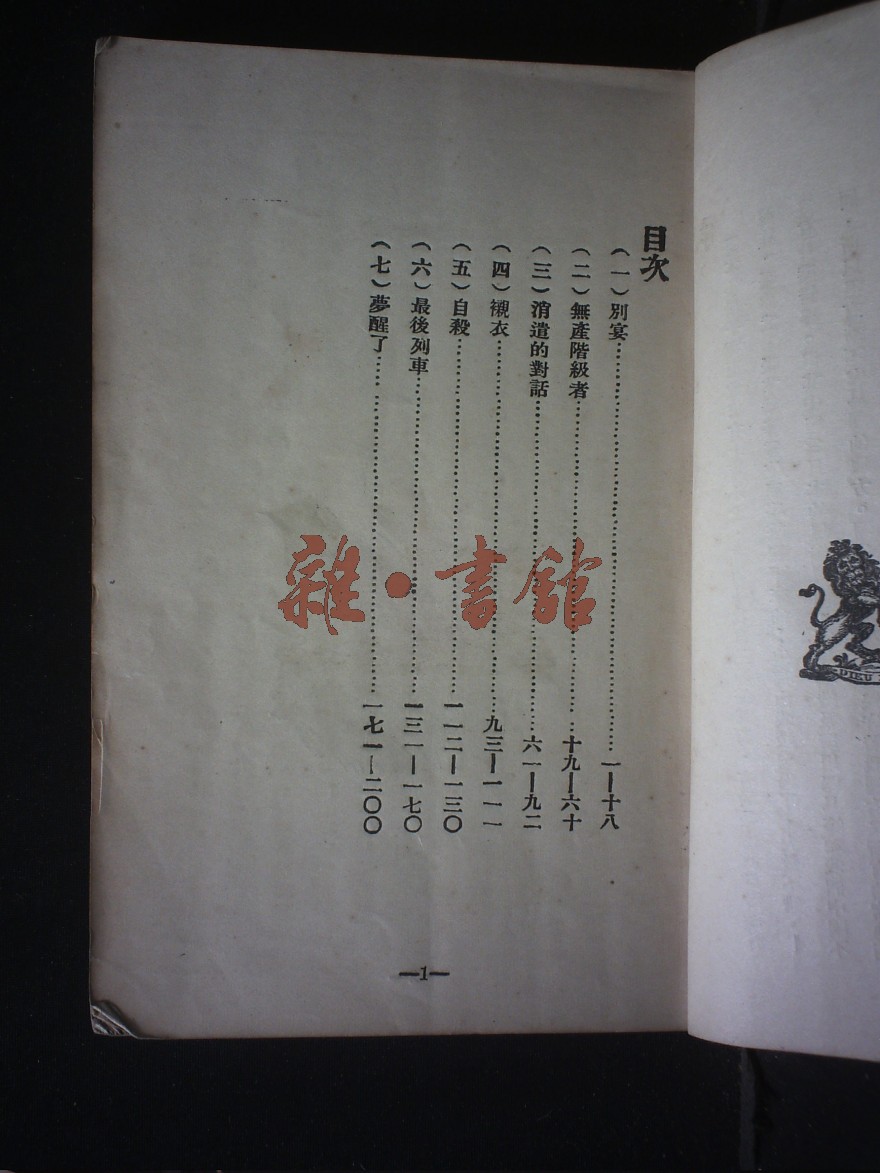 目次
（一）別宴……一—十八
（二）無產階級者……十九—六十
（三）消遣的對話……六一—九二
（四）襯衣……九三—一一一
（五）自殺……一一二—一三〇
（六）最後列車……一三一—一七〇
（七）夢醒了……一七一—二〇〇
—1—
雜·書館
DIEU